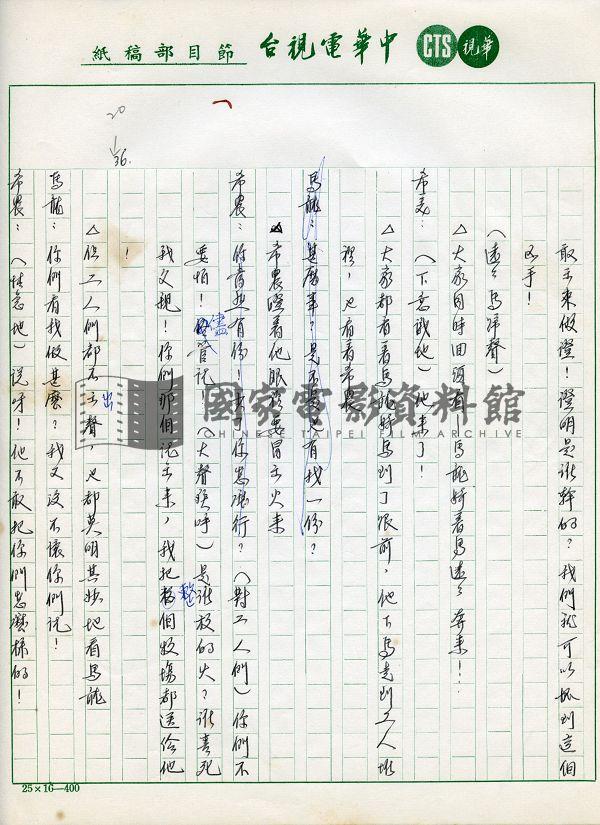 中華電視台節目部稿紙
CTS
華視
20
36.
敢出來做證！證明是誰幹的？我們就可以抓到這個
兇手！
（遠遠馬蹄聲）
△大家同時回頭看——馬龍騎着馬遠遠奔來！
希美：（下意識地）他來了！
△大家都看着馬龍騎馬到了跟前，他下馬走到工人堆
裡，也看着希農
馬龍：甚麼事？是不是也有我一份？
△希農瞪着他眼路要冒出火來
希農：你當然有份！（對工人們）你們不
要怕！儘管說！（大聲疾呼）是誰放的火？誰害死
我父親！你們那個說出來，我把整個牧場都送給他
！
△但工人們都不出聲，也都莫明其妙地看馬龍
馬龍：你們看我做甚麼？我又沒不讓你們說！
希農：（性急地）說呀！他不敢把你們怎麼樣的！
國家電影資料館
CHINESE TAIPEI FILM ARCHIVE
25×16—400